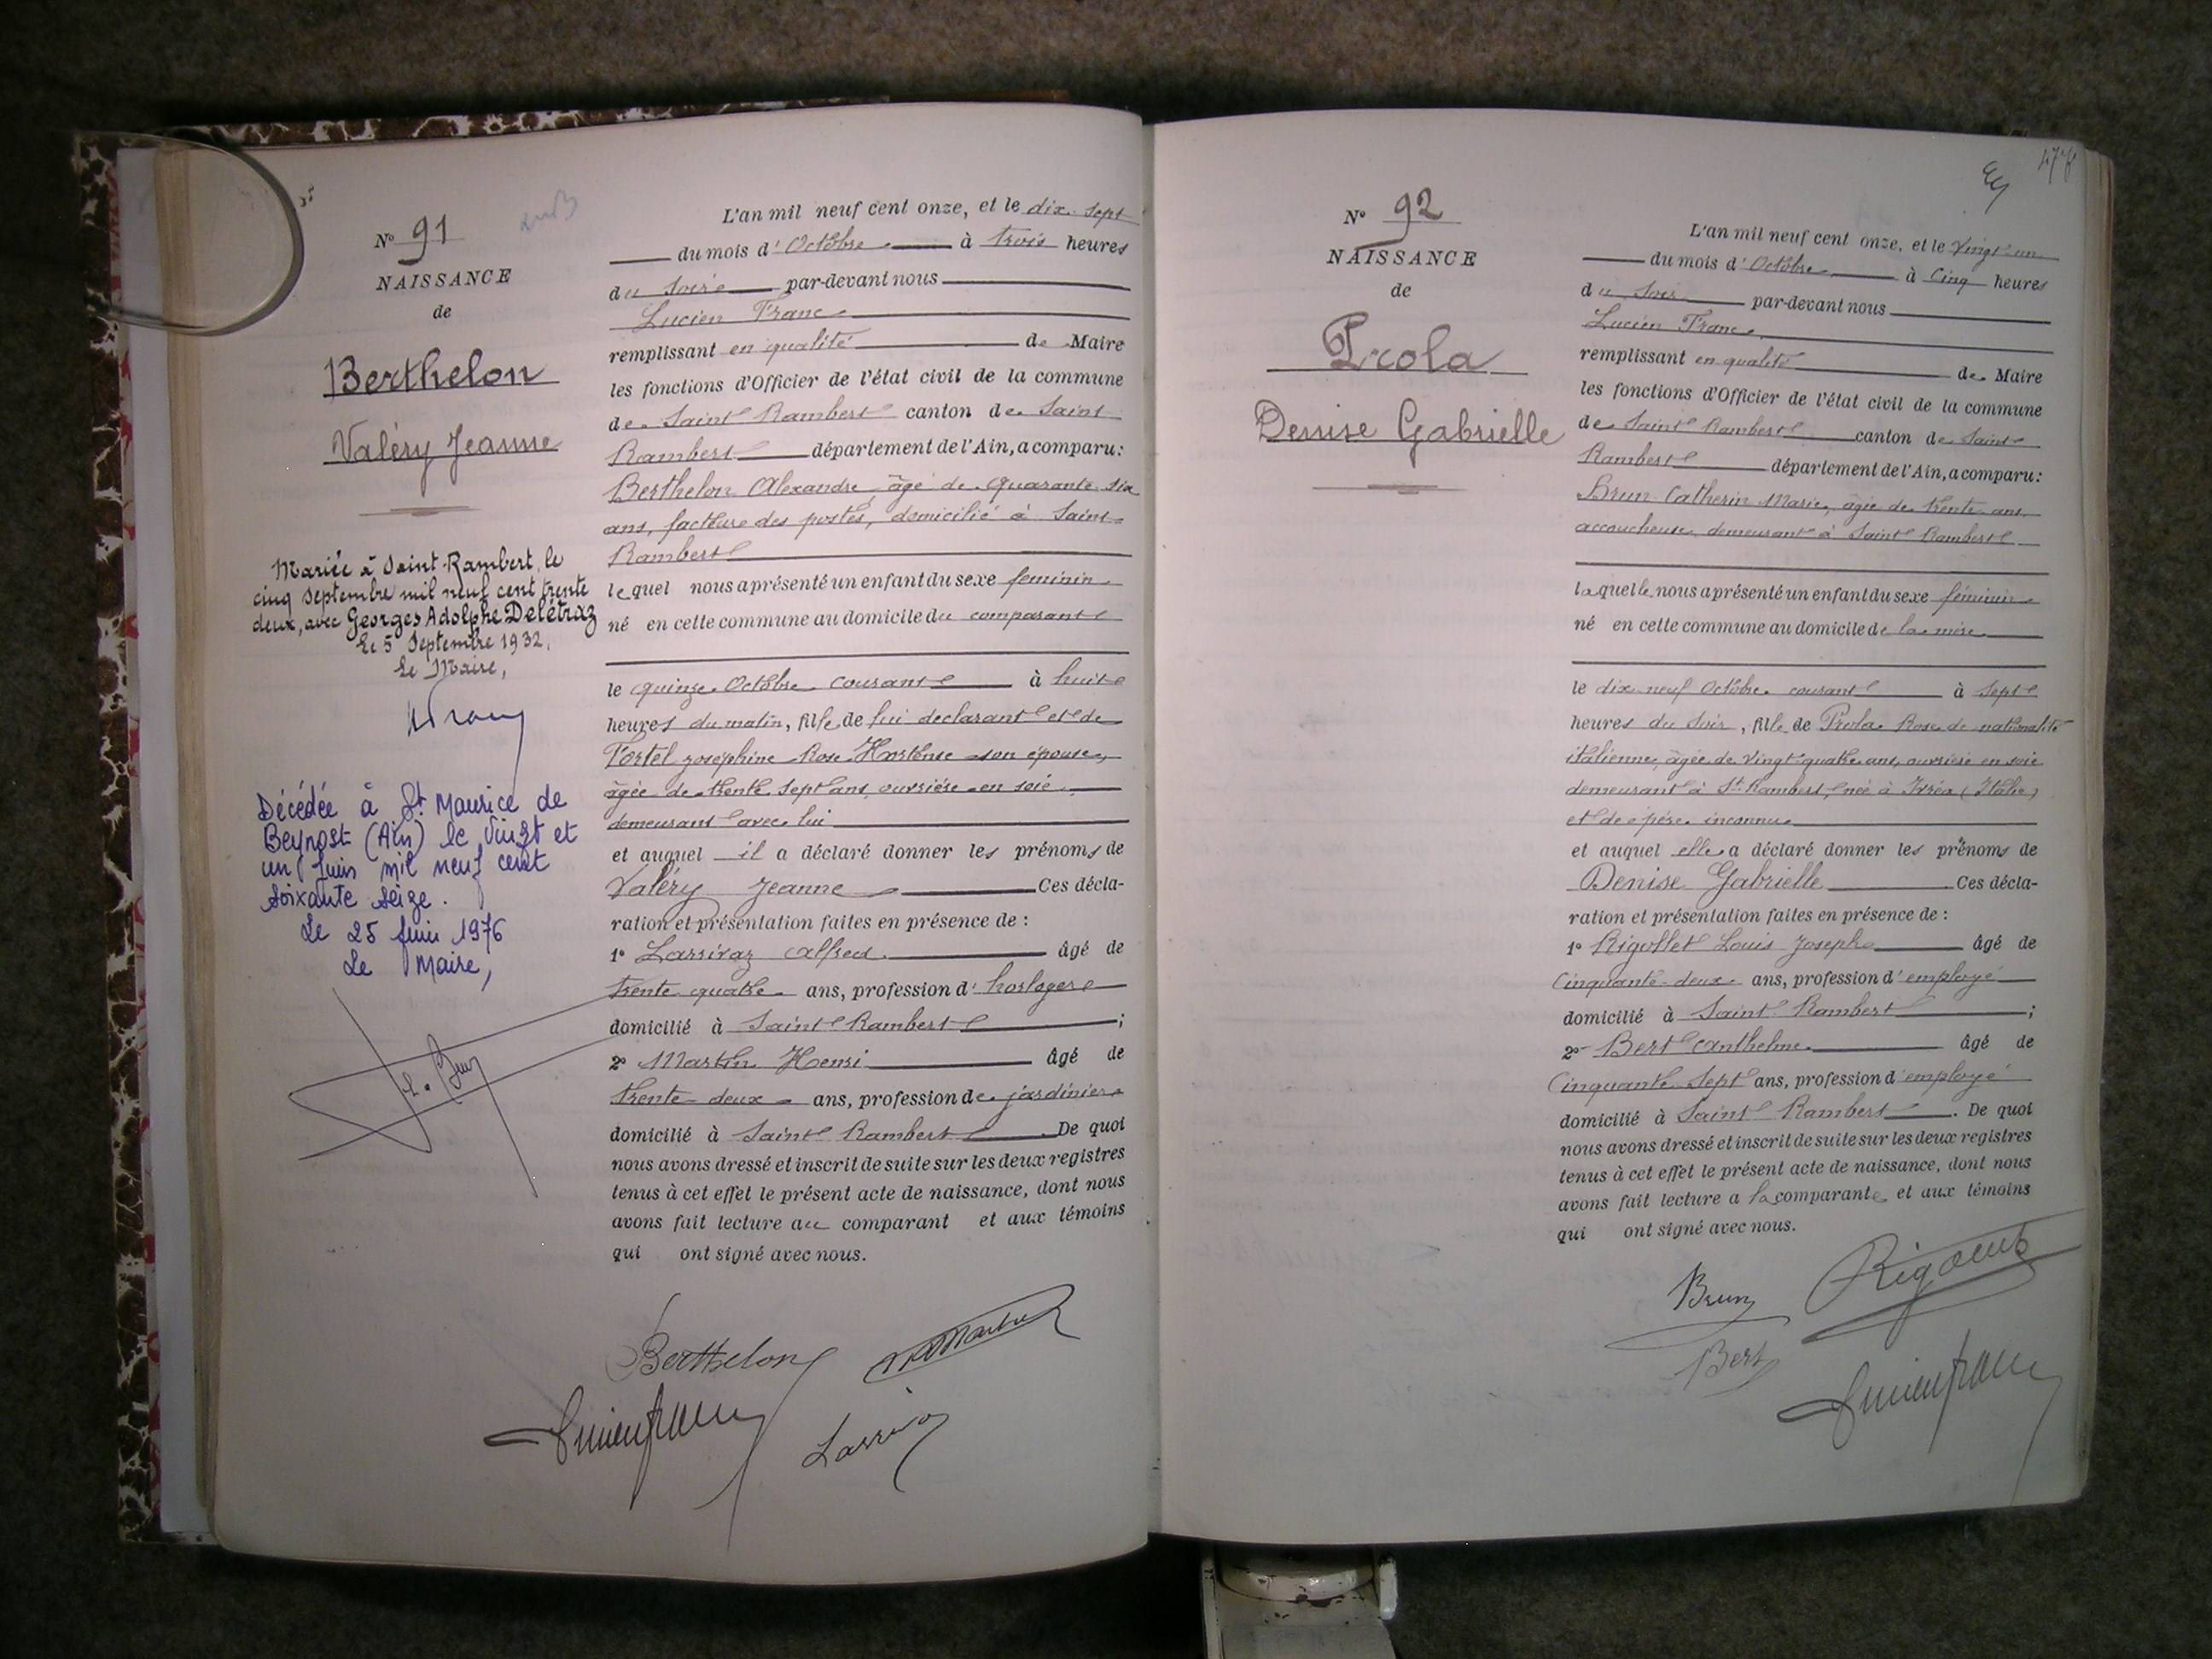 N° 91
NAISSANCE
de
Berthelon
Valéry Jeanne
Mariée à Saint-Rambert, le
cinq Septembre mil neuf cent trente
deux, avec Georges Adolphe Delétraz
Le 5 Septembre 1932.
Le Maire,
Décédée à St Maurice de
Beynost (Ain) le vingt et
un juin mil neuf cent
soixante seize.
Le 25 juin 1976
Le Maire,
L'an mil neuf cent onze, et le dix-sept
du mois d'Octobre à trois heures
du soir par-devant nous
Lucien Franc
remplissant en qualité de Maire
les fonctions d'Officier de l'état civil de la commune
de Saint Rambert canton de Saint
Rambert département de l'Ain, a comparu:
Berthelon Alexandre, âgé de quarante six
ans, facteur des postes, domicilié à Saint
Rambert
lequel nous a présenté un enfant du sexe feminin
né en cette commune au domicile du comparant
le quinze Octobre courant à huit
heures du matin, fille de lui declarant et de
Tortel Joséphine Rose Hortense son épouse,
âgée de trente sept ans, ouvrière en soie
demeurant avec lui
et auquel il a déclaré donner les prénoms de
Valéry Jeanne Ces décla-
ration et présentation faites en présence de :
1° Larrivaz Alfred âgé de
trente quatre ans, profession d'horloger
domicilié à Saint Rambert ;
2° Martin Henri âgé de
trente deux ans, profession de jardinier
domicilié à Saint Rambert De quoi
nous avons dressé et inscrit de suite sur les deux registres
tenus à cet effet le présent acte de naissance, dont nous
avons fait lecture au comparant et aux témoins
qui ont signé avec nous.
Berthelon
Martin
Lucien Franc
Larrivaz
N° 92
NAISSANCE
de
Prola
Denise Gabrielle
L'an mil neuf cent onze, et le vingt-un
du mois d'Octobre à cinq heures
du soir par-devant nous
Lucien Franc
remplissant en qualité de Maire
les fonctions d'Officier de l'état civil de la commune
de Saint Rambert canton de Saint
Rambert département de l'Ain, a comparu:
Brun Catherin Marie, âgée de trente ans
accoucheuse demeurant à Saint Rambert
laquelle nous a présenté un enfant du sexe féminin
né en cette commune au domicile de la mère
le dix-neuf Octobre courant à sept
heures du soir, fille de Prola Rose de nationalité
italienne, âgée de vingt-quatre ans, ouvrière en soie
demeurant à St Rambert, née à Ivréa (Italie)
et de père inconnu
et auquel elle a déclaré donner les prénoms de
Denise Gabrielle Ces décla-
ration et présentation faites en présence de :
1° Rigollet Louis Joseph âgé de
Cinquante-deux ans, profession d'employé
domicilié à Saint Rambert ;
2° Bert Anthelme âgé de
Cinquante sept ans, profession d'employé
domicilié à Saint Rambert . De quoi
nous avons dressé et inscrit de suite sur les deux registres
tenus à cet effet le présent acte de naissance, dont nous
avons fait lecture a la comparante et aux témoins
qui ont signé avec nous.
Brun
Bert
Lucien Franc